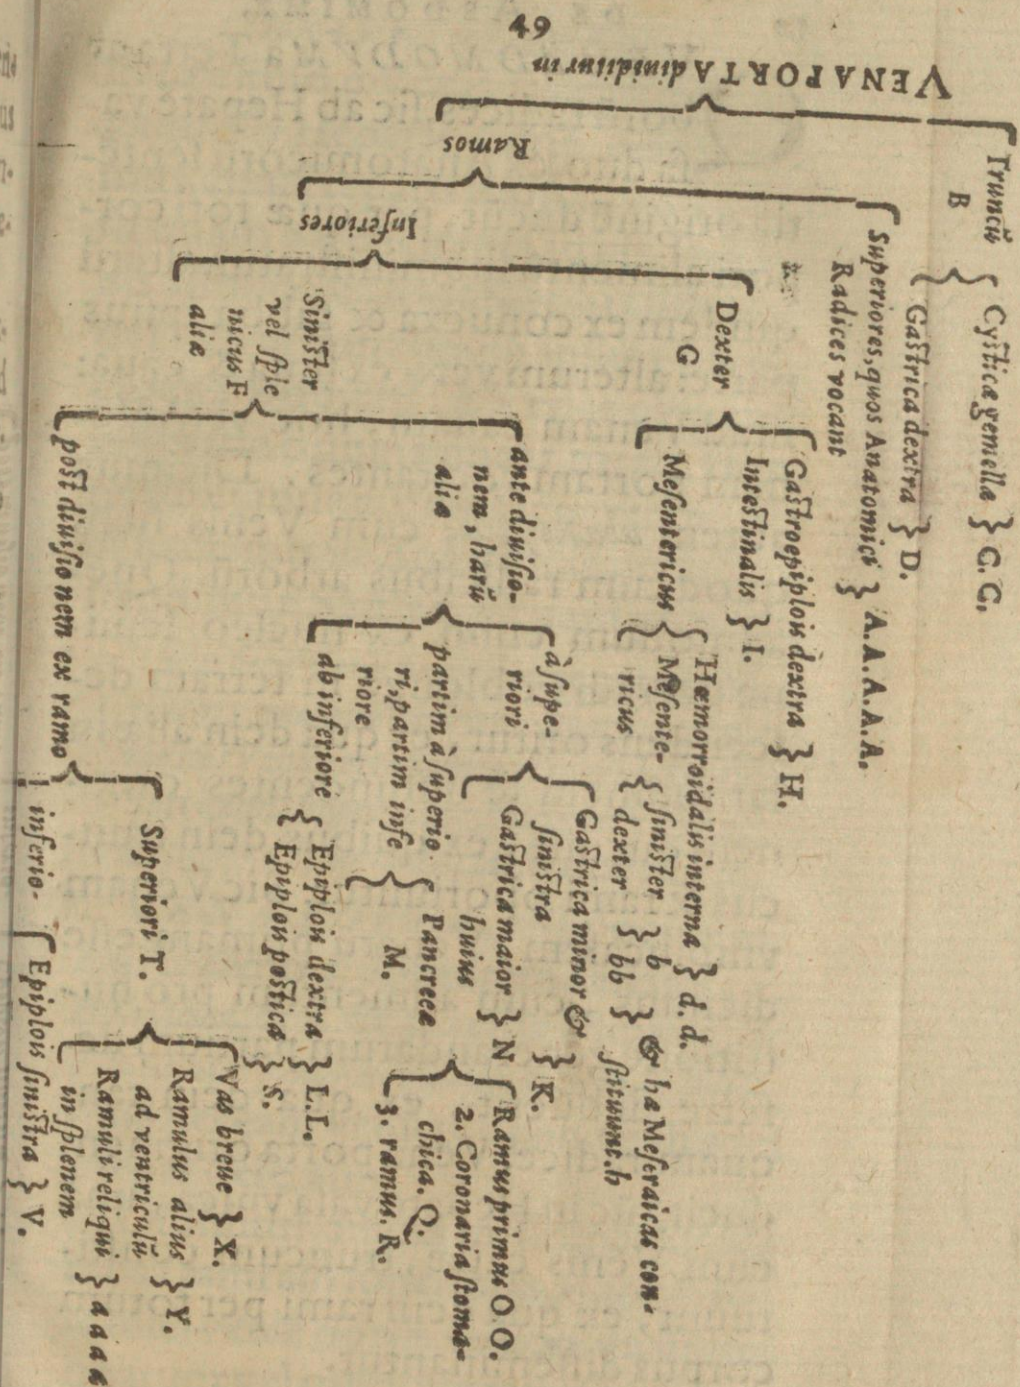 49
VENA PORTA diuiditur in
Truncũ
B
Cysticæ gemellæ } C. C.
Gastrica dextra } D.
Ramos
Superiores, quos Anatomici
Radices vocant
} A. A. A. A. A.
Inferiores
Dexter
G
Gastroepiplois dextra } H.
Intestinalis } I.
Mesentericus
Hæmorroidalis interna } d. d.
Mesente-
ricus
sinister } b
dexter } bb
} & hæ Meseraicas con-
stituunt. h
Sinister
vel sple
nicus F
aliæ
ante diuisio-
nem, harũ
aliæ
à supe-
riori
Gastrica minor &
sinistra
} K.
Gastrica maior
huius
} N
Ramus primus O O.
2. Coronaria stoma-
chica. Q.
3. ramus. R.
partim à superio
ri, partim infe
riore
Pancreeæ
M.
ab inferiore
Epiplois dextra } L. L.
Epiplois postica } S.
post diuisionem ex ramo
Superiori T.
Vas breue } X.
Ramulus alius
ad ventriculũ
} Y.
Ramuli reliqui
in splenem
} a a a a
inferio-
Epiplois sinistra } V.